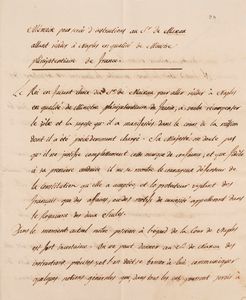 Mémoire pour servir d'instructions au Sr. de Mackau
allant résider à Naples en qualité de Ministre
plénipotentiaire de france.
Le Roi en faisant choix du Sr. de Mackau pour aller résider à Naples
en qualité de Ministre plénipotentiaire de france, a voulu récompenser
le zèle et la sagesse qu'il a manifestés dans le cours de la mission
dont il a été précédemment chargé. Sa Majesté ne doute pas
qu'il ne justifie complettement cette marque de confiance, et que fidèle
à sa première conduite, il ne se montre le défenseur de
la Constitution qu'elle a acceptée, et le protecteur vigilant des
français que des affaires, ou des motifs de curiosité appellent dans
le Royaume des deux Siciles.
Dans le moment actuel notre position à l'égard de la Cour de Naples
est fort incertaine. On ne peut donner au Sr. de Mackau des
instructions précises et l'on doit se borner à lui communiquer
quelques notions générales qui, dans tous les cas pourront servir à